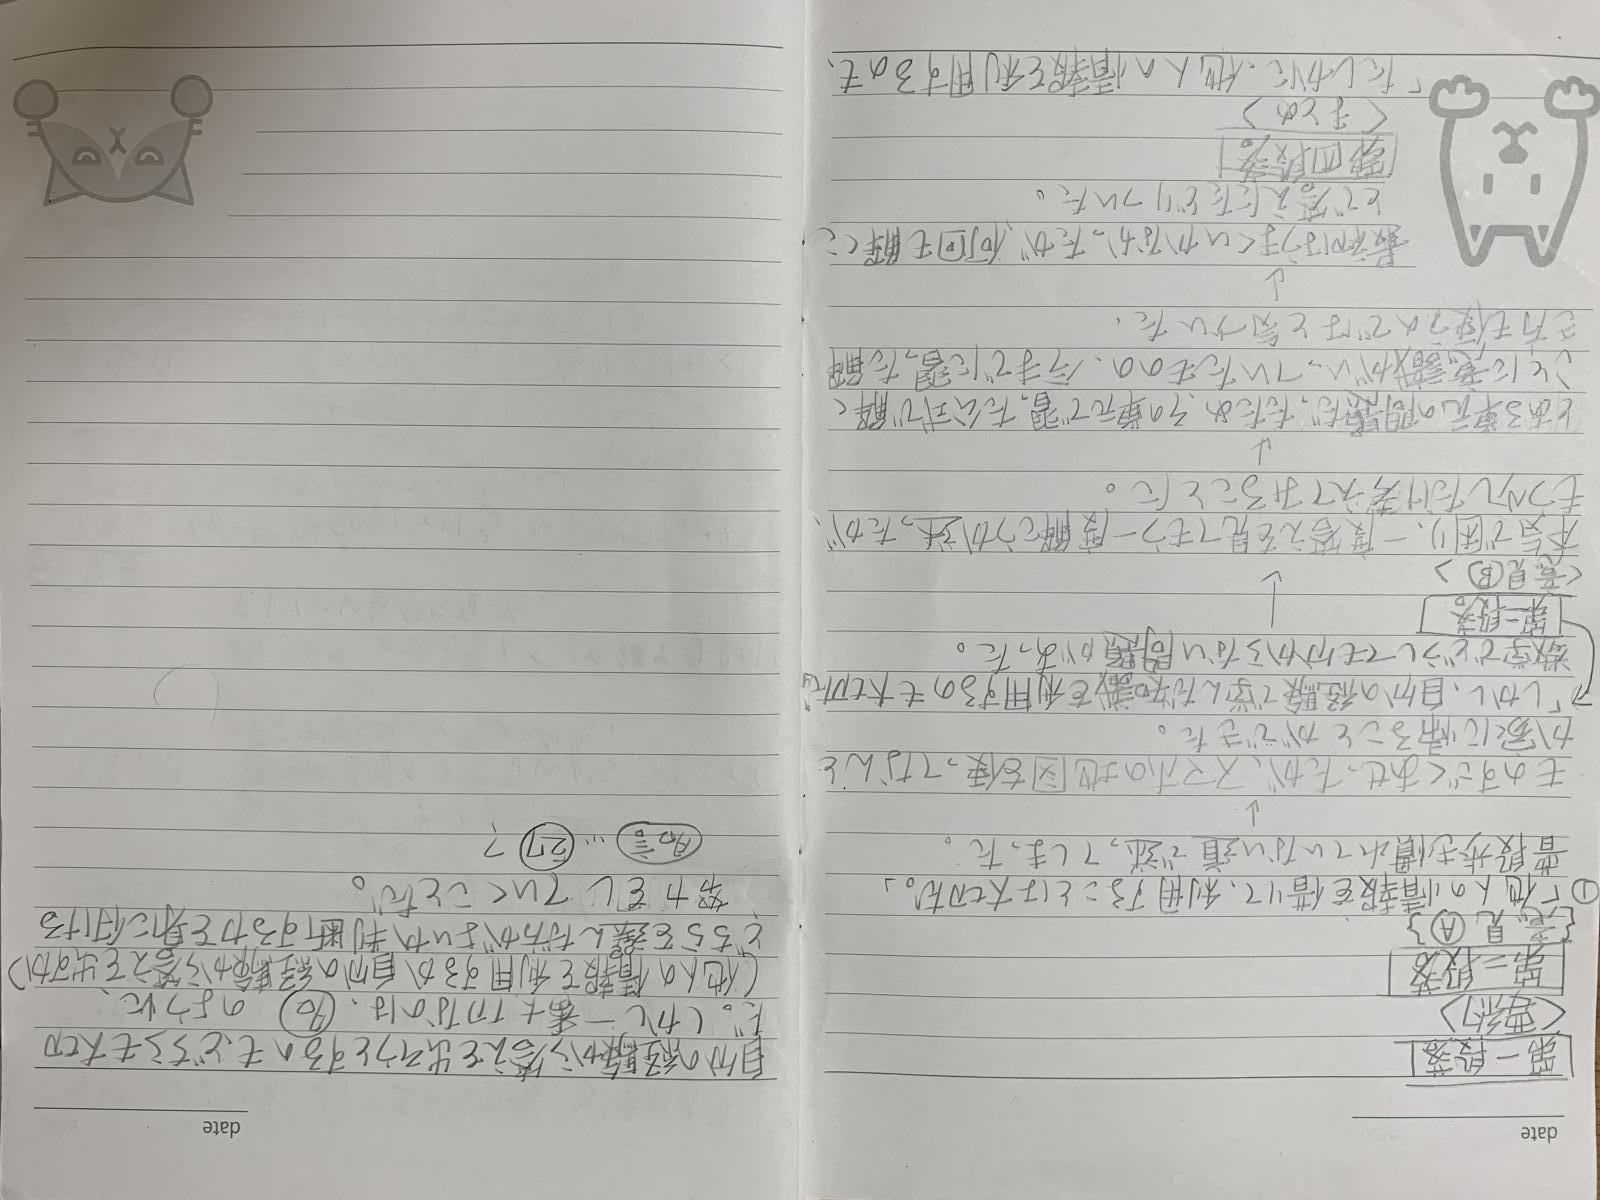 date
第一段落
<要約>
第二段落
{意見Ⓐ}
①「他人の情報を借りて、利用することは大切だ。」
普段歩き慣れていない道で迷ってしまった。
↓
ものすごくあせったが、スマホの地図を使ってなんと
か家に帰ることができた。
「しかし、自分の経験で学んだ知識を利用するのも大切だ」
数学でどうしても分からない問題があった。
第一段落
<意見Ⓑ>
↓
本気で困り、一度答えを見てもう一度解こうか迷ったが、
もう少しだけ考えてみることに。
↓
とある単元の問題だったため、その単元で習った公式で解く
ことに意識がいっていたものの、今までに習った解
き方も使うのではと気づいた。
↓
最初はうまくいかなかったが、何回も解くこ
とで答えにたどりついた。
第四段落
<まとめ>
「たしかに、他人の情報を利用するのも、
date
自分の経験から答えを出そうとするのも、どちらも大切
だ。しかし一番大切なのは、名のように、
(他人の情報を利用するか自分の経験から答えを出すか)
どちらを選んだ方がよいか判断する力を身に付ける
努力をしていくことだ。
名言…27?